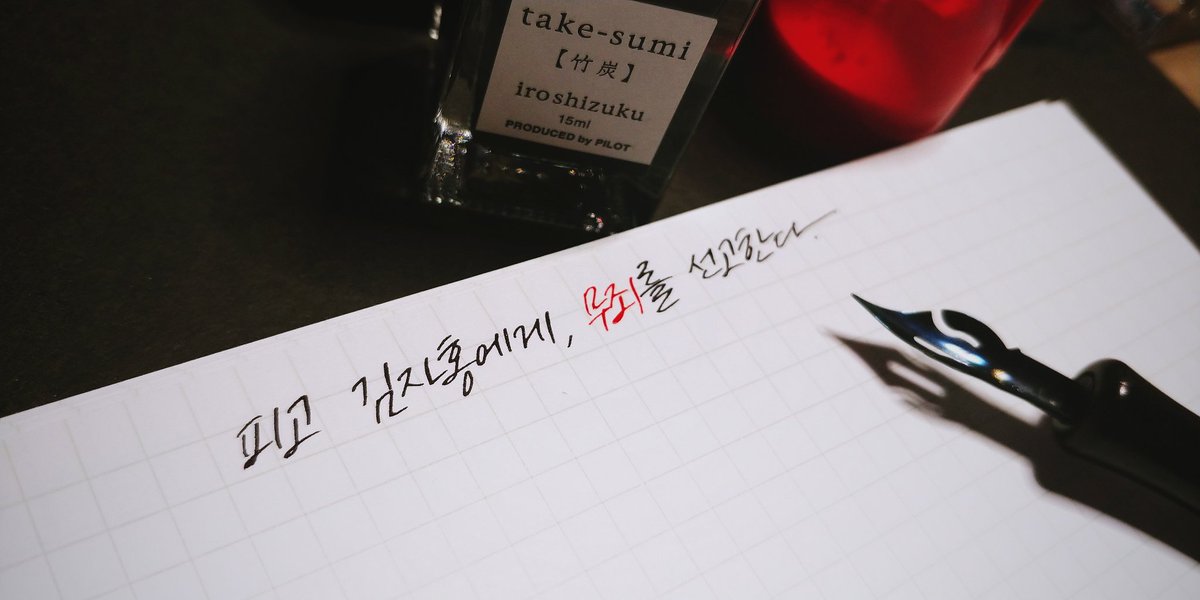 take-sumi
【竹炭】
iroshizuku
15ml
PRODUCED by PILOT
피고 김자홍에게, 무죄를 선고한다.